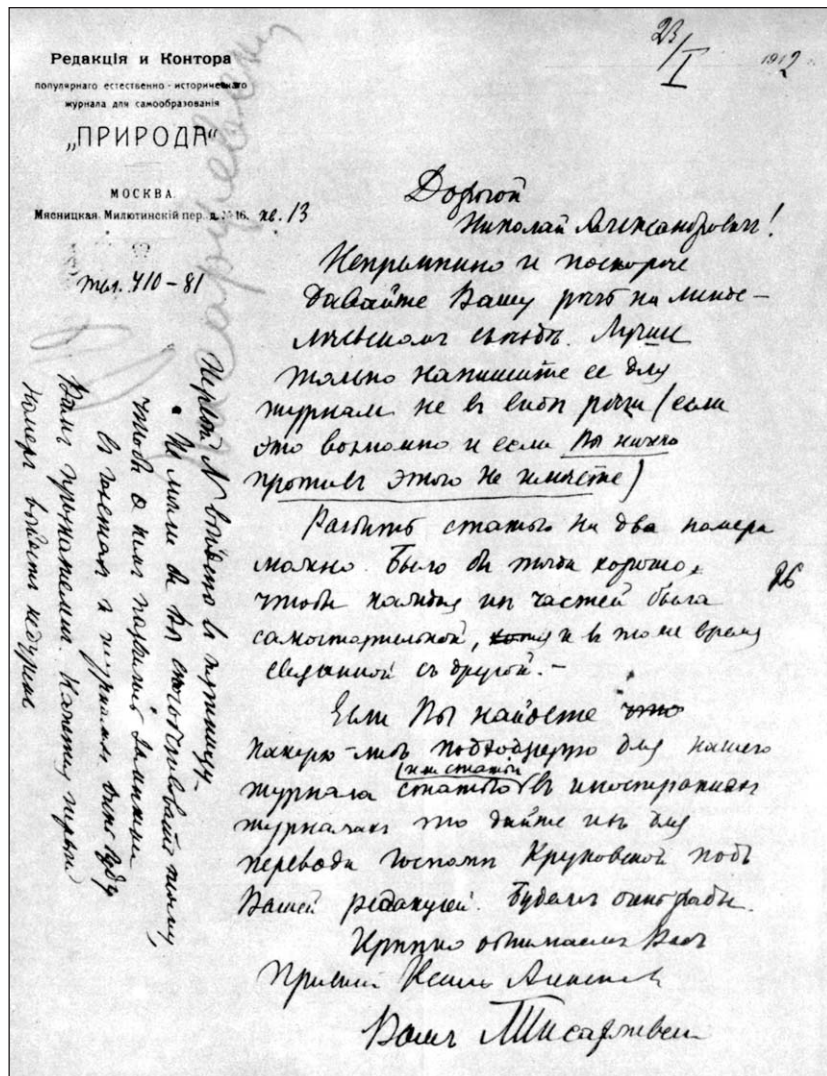 Редакція и Контора
популярнаго естественно-историческаго
журнала для самообразованія
„ПРИРОДА“
МОСКВА.
Мясницкая, Милютинскій пер. д. № 16. кв. 13
тел. 410-81
23/I 1912 г.
Дорогой
Николай Александрович!
Непременно и поскорее
давайте Вашу речь на Менде-
леевском съезде. Лучше
только напишите ее для
журнала не в виде речи (если
это возможно и если Вы ничего
против этого не имеете)
Разбить статью на два номера
можно. Было бы только хорошо,
чтобы каждая из частей была
самостоятельной, и в то же время
связанной съ другой. –
Если Вы найдете
какую-либо подходящую для нашего
журнала статью (или статьи) въ иностранных
журналах то дайте их для
перевода Госпоже Круковской подъ
Вашей редакцией. Будем очень рады.
Крепко обнимаем Вас
Привет
Вашъ Писаржевский
Первый № выйдет в пятницу.
Не могли бы Вы способствовать тому,
чтобы о нем появились заметки
в газетах и журналах очень буду
Вам признателен. Кажется первый
номер выйдет недурно